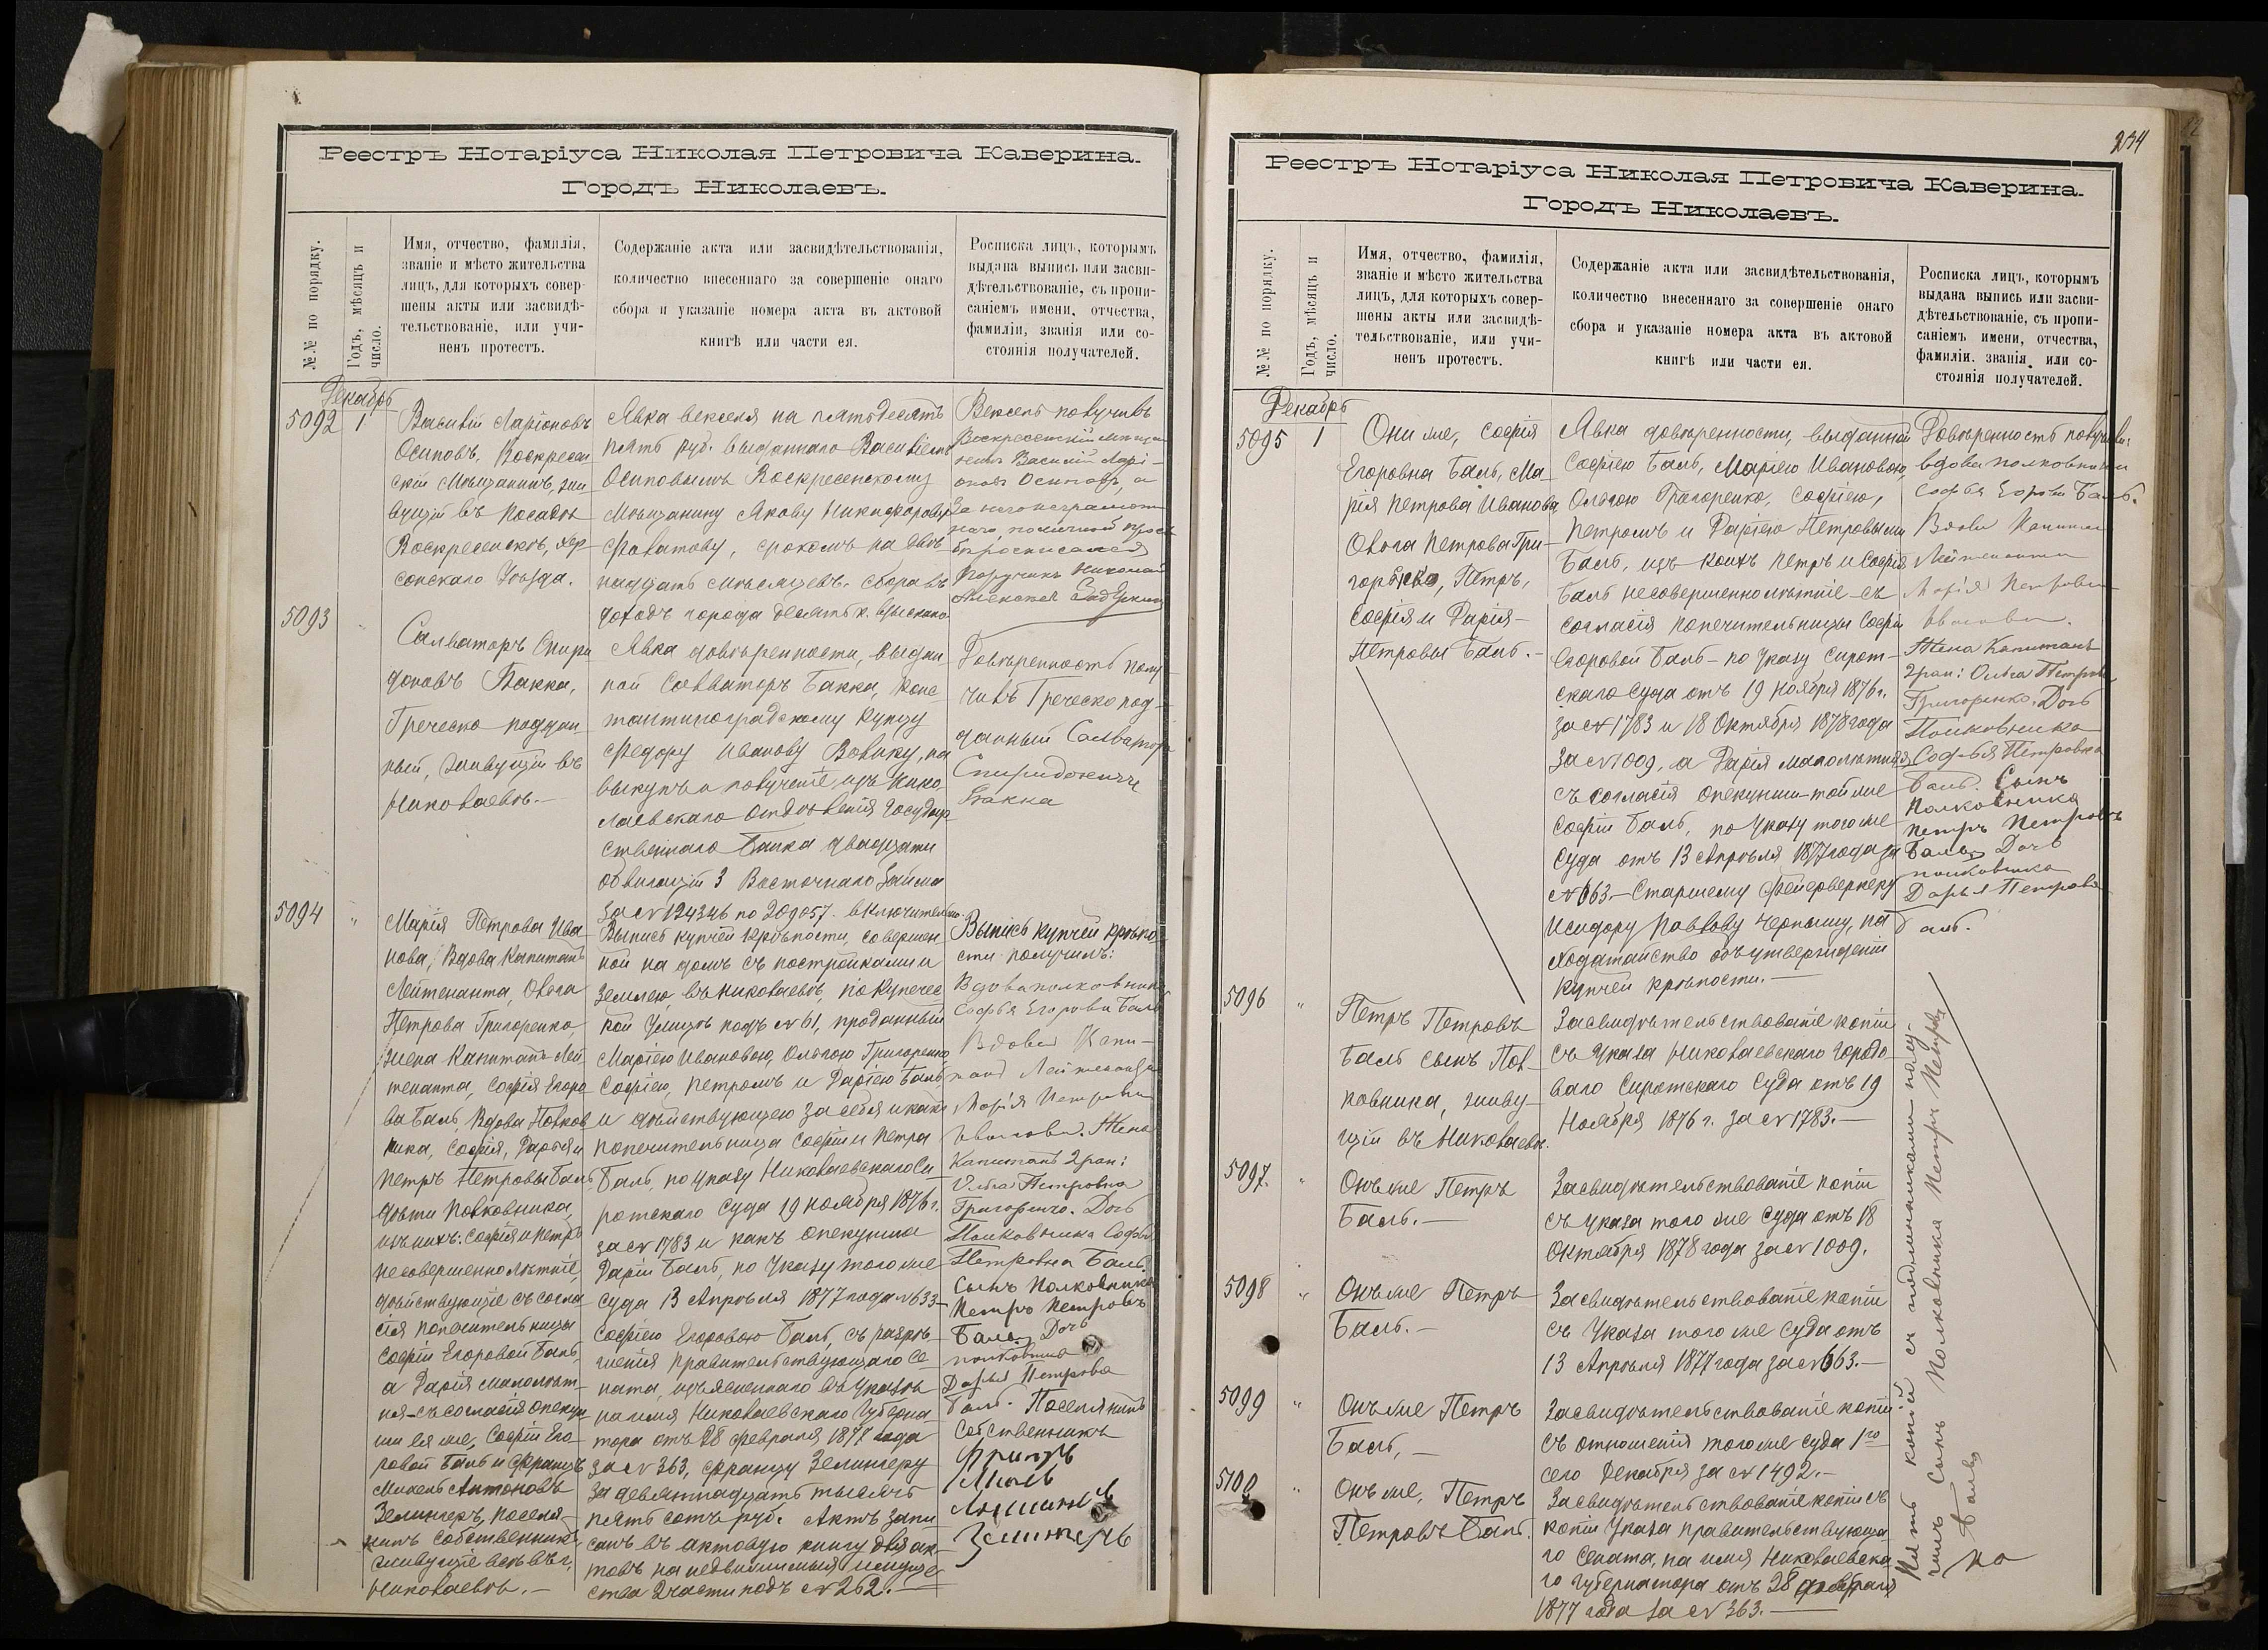 Реестръ Нотаріуса Николая Петровича Каверина.
Городъ Николаевъ.
№№ по порядку.
Годъ, мѣсяцъ и
число.
Имя, отчество, фамилія,
званіе и мѣсто жительства
лицъ, для которыхъ совер-
шены акты или засвидѣ-
тельствованіе, или учи-
ненъ протестъ.
Содержаніе акта или засвидѣтельствованія,
количество внесеннаго за совершеніе онаго
сбора и указаніе номера акта въ актовой
книгѣ или части ея.
Росписка лицъ, которымъ
выдана выпись или засви-
дѣтельствованіе, съ пропи-
саніемъ имени, отчества,
фамиліи, званія или со-
стоянія получателей.
Декабрь
5092 1
Василій Ларіоновъ
Осиповъ, Воскресен
скій Мѣщанинъ, жи
вущій въ Посадѣ
Воскресенскѣ, Хер
сонскаго Уѣзда.
Явка векселя на пятьдесятъ
пять руб. выданнаго Василіемъ
Осиповымъ Воскресенскому
Мѣщанину Якову Никифорову
срокомъ на двѣ
надцать мѣсяцевъ. Сбора въ
доходъ города десять к. взыскано
Вексель получилъ
Воскресенскій мѣща
нинъ Василій Ларі-
оновъ Осиповъ, а
за него неграмот
наго, по личной прось
бѣ росписался
Поручикъ Николай
5093 "
Салваторъ Спири
доновъ Вакка,
Греческо поддан
ный, живущій въ
Николаевѣ.—
Явка довѣренности, выдан
ной Салваторъ Вакка, Конс
тантиноградскому Купцу
Федору Иванову Вовику, на
выкупъ и полученіе изъ Нико
лаевскаго Отдѣленія Государ
ственнаго Банка двадцати
облигацій 3 Восточнаго Займа
за № 194346 по 209057. включительно
Довѣренность полу
чилъ Греческо под
данный Салваторъ
Спиридоничъ
Вакка
5094 "
Марія Петрова Ива
нова, Вдова Капитанъ
Лейтенанта, Ольга
Петрова Григоренко
жена Капитанъ Лей
тенанта, Софія Егоро
ва Баль, Вдова Полков
ника, Софія, Дарья и
Петръ Петровы Баль,
дѣти Полковника,
изъ нихъ: Софія и Петръ
несовершеннолѣтніе,
дѣйствующіе съ согла
сія попечительницы
Софіи Егоровой Баль,
а Дарія малолѣт
няя — съ согласія опекун
ши ея же, Софіи Его
ровой Баль и Францъ
Михель Антоновъ
Зелингеръ, поселя
нинъ собственникъ,
живущіе всѣ въ г.
Николаевѣ.—
Выпись купчей крѣпости, совершен
ной на домъ съ постройками и
землею, въ Николаевѣ, по Купечес
кой улицѣ подъ № 61, проданный
Маріею Ивановою, Ольгою Григоренко,
Софіею, Петромъ и Даріею Баль
и дѣйствующею за себя и какъ
попечительница Софіи и Петра
Баль, по указу Николаевскаго Си
ротскаго Суда 19 ноября 1876 г.
за № 1783 и какъ опекунша
Даріи Баль, по Указу того же
Суда 13 Апрѣля 1877 года № 633—
Софіею Егоровою Баль, съ разрѣ
шенія Правительствующаго Се
ната, изъясненнаго въ Указѣ
на имя Николаевскаго Губерна
тора отъ 28 февраля 1877 года
за № 363, Францу Зелингеру
за девятнадцать тысячъ
пять сотъ руб. Актъ запи
санъ въ актовую книгу для ак
товъ на недвижимыя имуще
ства 2 части подъ № 262.
Выпись купчей крѣпо
сти получилъ:
Вдова полковника
Софья Егорова Баль
Вдова Капи-
танъ Лейтенанта
Марія Петрова
Иванова. Жена
Капитанъ 2 ран:
Ольга Петровна
Григоренко. Дочь
Полковника Софья
Петровна Баль.
Сынъ Полковника
Петръ Петровъ
Баль, Дочь
полковника
Дарья Петрова
Баль. Поселянинъ
Собственникъ
Францъ
Антоновъ
Зелингеръ
234
Реестръ Нотаріуса Николая Петровича Каверина.
Городъ Николаевъ.
№№ по порядку.
Годъ, мѣсяцъ и
число.
Имя, отчество, фамилія,
званіе и мѣсто жительства
лицъ, для которыхъ совер-
шены акты или засвидѣ-
тельствованіе, или учи-
ненъ протестъ.
Содержаніе акта или засвидѣтельствованія,
количество внесеннаго за совершеніе онаго
сбора и указаніе номера акта въ актовой
книгѣ или части ея.
Росписка лицъ, которымъ
выдана выпись или засви-
дѣтельствованіе, съ пропи-
саніемъ имени, отчества,
фамиліи. званія или со-
стоянія получателей.
Декабрь
5095 1
Они же, Софія
Егоровна Баль, Ма-
рія Петрова Иванова
Ольга Петрова Гри-
горенко, Петръ,
Софія и Дарія—
Петровы Баль.—
Явка довѣренности, выданной
Софіею Баль, Маріею Ивановою,
Ольгою Григоренко, Софіею,
Петромъ и Даріею Петровыми
Баль, изъ коихъ Петръ и Софія
Баль несовершеннолѣтніе — съ
согласія попечительницы Софіи
Егоровой Баль — по Указу Сирот-
скаго Суда отъ 19 Ноября 1876 г.
за № 1783 и 18 Октября 1878 года
за № 1009, а Дарія малолѣтняя
съ согласія опекунши — той же
Софіи Баль, по Указу того же
Суда отъ 13 Апрѣля 1877 года за
№ 663 — Старшему Фейерверкеру
Исидору Павлову Черныму, на
ходатайство объ утвержденіи
купчей крѣпости.—
Довѣренность получили:
вдова полковника
Софья Егорова Баль.
Вдова Капитанъ
Лейтенанта
Марія Петрова
Иванова.
Жена Капитанъ
2 ран: Ольга Петровна
Григоренко. Дочь
Полковника
Софья Петровна
Баль. Сынъ
Полковника
Петръ Петровъ
Баль, Дочь
полковника
Дарья Петрова
Баль.
5096 "
Петръ Петровъ
Баль сынъ Пол-
ковника, живу-
щій въ Николаевѣ.
Засвидѣтельствованіе копіи
съ Указа Николаевскаго Городо
ваго Сиротскаго Суда отъ 19
Ноября 1876 г. за № 1783.—
5097. "
Онъ же Петръ
Баль.—
Засвидѣтельствованіе копіи
съ указа того же Суда отъ 18
Октября 1878 года за № 1009.
5098 "
Онъ же Петръ
Баль.—
Засвидѣтельствованіе копіи
съ Указа того же Суда отъ
13 Апрѣля 1877 года за № 663.—
5099 "
Онъ же Петръ
Баль,—
Засвидѣтельствованіе копіи
съ отношенія того же Суда 1го
сего Декабря за № 1492.—
5100 "
Онъ же, Петръ
Петровъ Баль.
Засвидѣтельствованіе копіи съ
копіи Указа Правительствующа
го Сената, на имя Николаевска
го Губернатора отъ 28 февраля
1877 года за № 363.—
Пять копій съ подлинниками полу-
чилъ Сынъ Полковника Петръ Петровъ
Баль